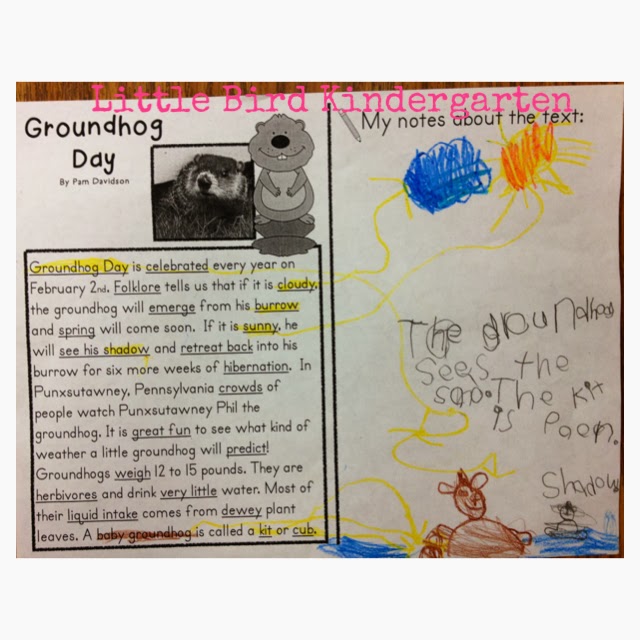 Little Bird Kindergarten
Groundhog
Day
By Pam Davidson
Groundhog Day is celebrated every year on
February 2nd. Folklore tells us that if it is cloudy,
the groundhog will emerge from his burrow
and spring will come soon. If it is sunny, he
will see his shadow and retreat back into his
burrow for six more weeks of hibernation. In
Punxsutawney, Pennsylvania crowds of
people watch Punxsutawney Phil the
groundhog. It is great fun to see what kind of
weather a little groundhog will predict!
Groundhogs weigh 12 to 15 pounds. They are
herbivores and drink very little water. Most of
their liquid intake comes from dewey plant
leaves. A baby groundhog is called a kit or cub.
My notes about the text:
The groundhog
sees the
The kit
is
Shadow